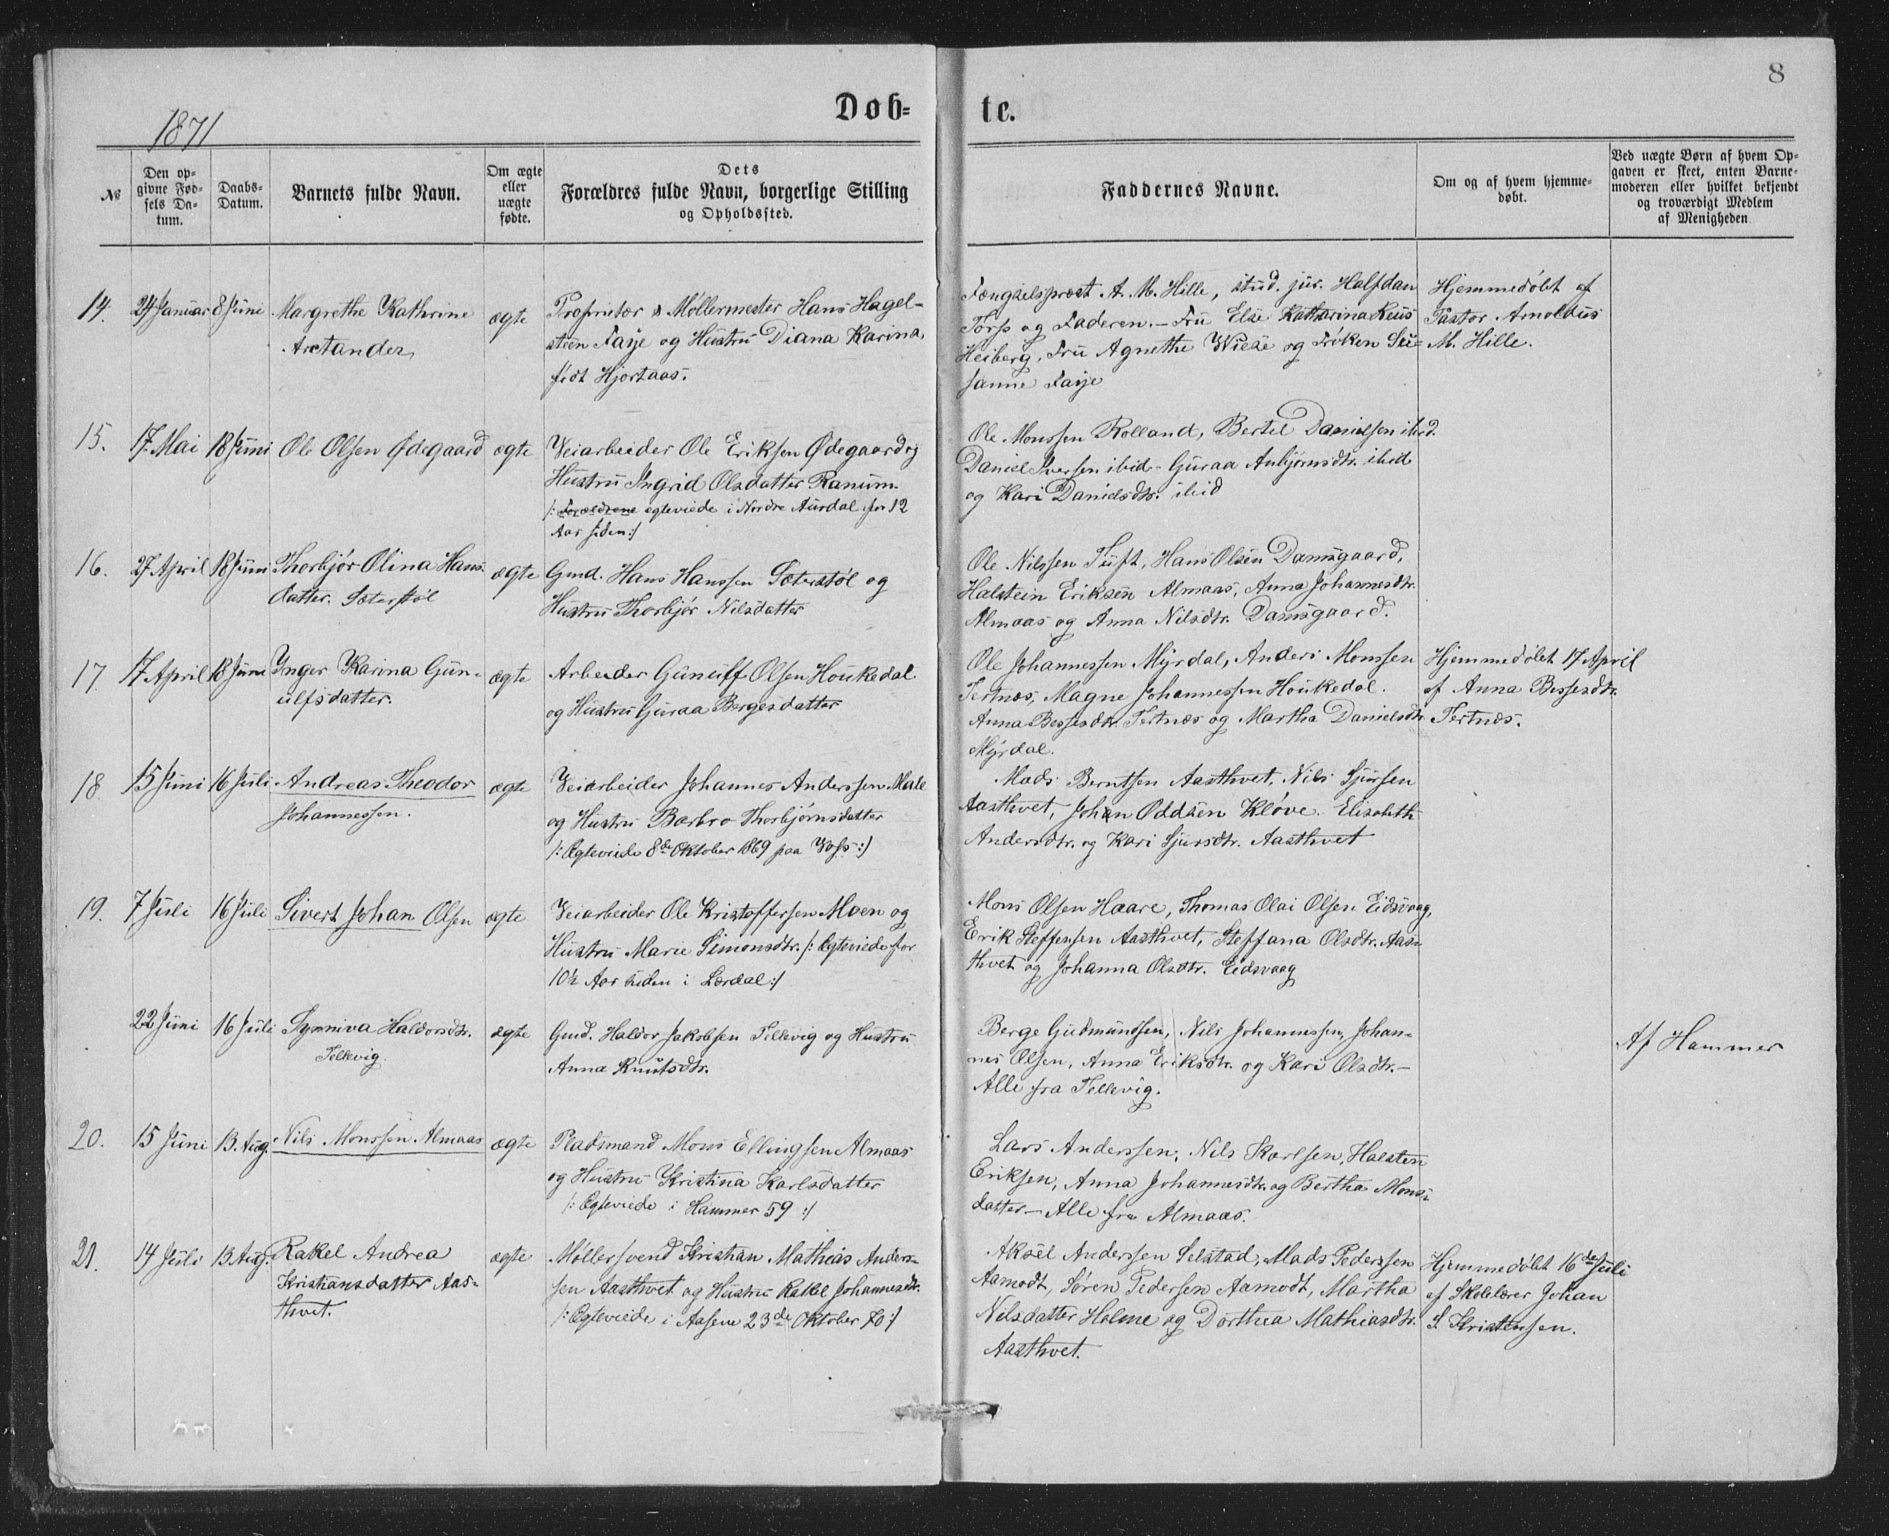 8
Døb- te.
1871
№
Den op-
givne Fød-
sels Da-
tum.
Daabs-
Datum.
Barnets fulde Navn.
Om ægte
eller
uægte
fødte.
Dets
Forældres fulde Navn, borgerlige Stilling
og Opholdssted.
Faddernes Navne.
Om og af hvem hjemme-
døbt.
Ved uægte Børn af hvem Op-
gaven er skeet, enten Barne-
moderen eller hvilket bekjendt
og troværdigt Medlem
af Menigheden
14. 24 Januar 8 Juni Margrethe Kathrine
Arctander
ægte
Proprietær & Møllermester Hans Hagel-
steen Faye og Hustru Diana Karina,
født Hjortaas.
Fængselspræst A. M. Hille, stud. jur. Halfdan
Torp og Faderen. – Fru Else Katharina Reus
Heiberg, Fru Agnethe Wiese og Frøken Su-
sanne Faye
Hjemmedøbt af
Pastor Arnoldus
M. Hille.
15. 17 Mai 18 Juni Ole Olsen Ødegaard ægte
Veiarbeider Ole Eriksen Ødegaard og
Hustru Ingrid Olsdatter Ranum.
/: Forældrene egteviede i Nordre Aurdal for 12
Aar siden :/
Ole Monssen Rolland, Bertel Danielsen ibid.
Daniel Iversen ibid – Guraa Anbjørnsdtr. ibid
og Kari Danielsdtr. ibid
16. 27 April 18 Juni Thorbjør Olina Hans-
datter. Sæterstøl
ægte
Gmd. Hans Hanssen Sæterstøl og
Hustru Thorbjør Nilsdatter
Ole Nilssen Tuft, Hans Olsen Damsgaard,
Halstein Eriksen Almaas, Anna Johannesdtr.
Almaas og Anna Nilsdtr. Damsgaard.
17. 17 April 18 Juni Inger Karina Gun-
ulfsdatter.
ægte
Arbeider Gunulf Olsen Houkedal
og Hustru Guraa Bergesdatter
Ole Johannessen Myrdal, Anders Monssen
Tertnæs, Magne Johannessen Houkedal.
Anna Bessesdtr. Tertnæs og Martha Danielsdtr.
Myrdal.
Hjemmedøbt 17 April
af Anna Bessesdtr.
Tertnæs.
18 15 Juni 16 Juli Andreas Theodor
Johannessen.
ægte
Veiarbeider Johannes Anderssen Male
og Hustru Barbro Thorbjørnsdatter
/: Egteviede 8de Oktober 1869 paa Voss :/
Mads Berntsen Aasthvet, Nils Sjursen
Aasthvet, Johan Oddsen Kløve. Elisabeth
Andersdtr. og Kari Sjursdtr. Aasthvet
19. 7 Juli 16 Juli Sivert Johan Olsen ægte
Veiarbeider Ole Kristoffersen Moen og
Hustru Marie Simonsdtr. /: Egteviede for
10½ Aar siden i Lærdal :/
Mons Olsen Haare, Thomas Olai Olsen Eidsvaag,
Erik Steffensen Aasthvet, Steffana Olsdtr. Aas-
thvet og Johanna Olsdtr. Eidsvaag
22 Juni 16 Juli Synniva Haldorsdtr.
Tellevig.
ægte
Gmd. Haldor Jakobsen Tellevig og Hustru
Anna Knutsdtr.
Berge Gudmundsen, Nils Johannessen, Johan-
nes Olsen, Anna Eriksdtr. og Kari Olsdtr. –
Alle fra Tellevig.
Af Hammer
20. 15 Juni 13. Aug. Nils Monssen Almaas ægte
Pladsmand Mons Ellingsen Almaas
og Hustru Kristina Karlsdatter
/: Egteviede i Hammer 59 :/
Lars Anderssen, Nils Karlsen, Halsten
Eriksen, Anna Johannesdtr. og Bertha Mons-
datter – Alle fra Almaas.
21. 14 Juli 13 Aug. Rakel Andrea
Kristiansdatter Aas-
thvet.
ægte
Møllersvend Kristian Mathias Anders-
sen Aasthvet og Hustru Rakel Johannesdtr.
/: Egteviede i Aasene 23de Oktober 70 :/
Aksel Anderssen Selstad, Mads Pederssen
Aamodt, Søren Pedersen Aamodt, Martha
Nilsdatter Holme og Dorthea Mathiasdtr.
Aasthvet.
Hjemmedøbt 16de Juli
af Skolelærer Johan
S. Kristensen.